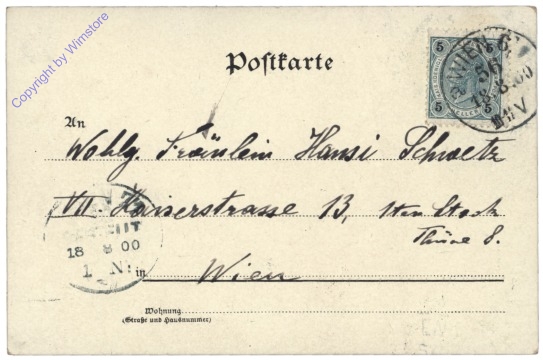 Copyright by Wimstore
Postkarte
5 5
WIEN
18 8 00
V
An
Wohlg. Fräulein Hansi Schwetz
VII Kaiserstrasse 13, 1ten Stock
Thüre 8.
18 8 00
1 N
in Wien
Wohnung
(Straße und Hausnummer)